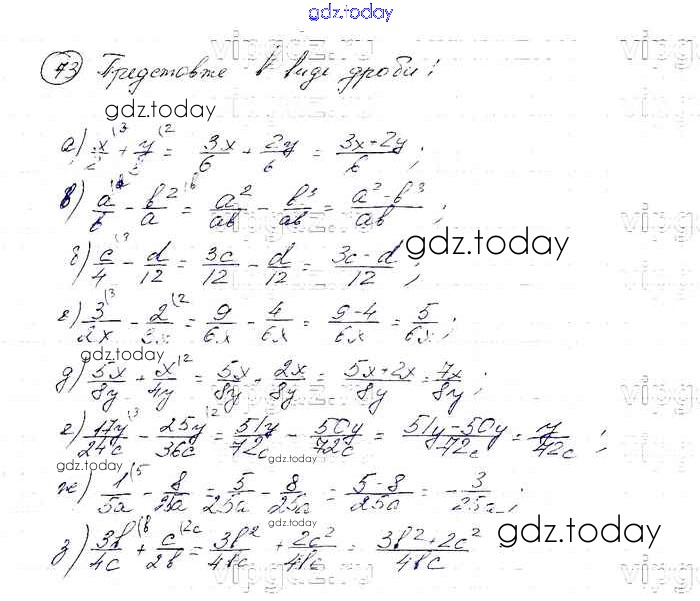 gdz.today
73 Представте в виде дроби:
gdz.today
а) x/2 (3 + y/3 (2 = 3x/6 + 2y/6 = 3x+2y/6 ;
в) a/b (a - b²/a (b = a²/ab - b³/ab = a²-b³/ab ;
б) c/4 (3 - d/12 = 3c/12 - d/12 = 3c-d/12 ;
gdz.today
г) 3/2x (3 - 2/3x (2 = 9/6x - 4/6x = 9-4/6x = 5/6x ;
gdz.today
д) 5x/8y + x/4y (2 = 5x/8y + 2x/8y = 5x+2x/8y = 7x/8y ;
е) 17y/24c (3 - 25y/36c (2 = 51y/72c - 50y/72c = 51y-50y/72c = y/72c ;
gdz.today
ж) 1/5a (5 - 8/25a = 5/25a - 8/25a = 5-8/25a = - 3/25a ;
з) 3b/4c (b + c/2b (2c = 3b²/4bc + 2c²/4bc = 3b²+2c²/4bc
gdz.today